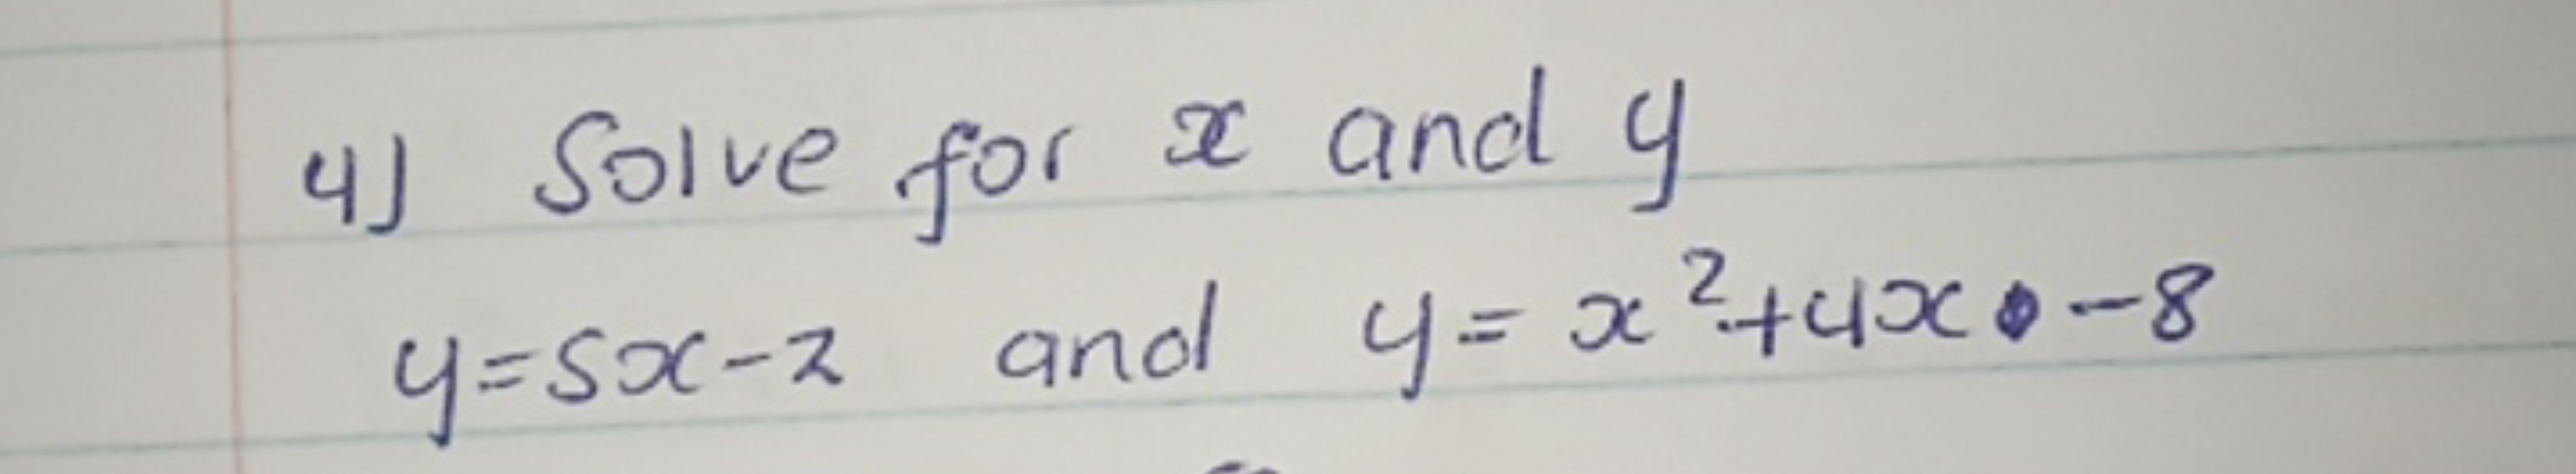 4) Solve for x and y
y=5x-2 and y= x²+4x -8